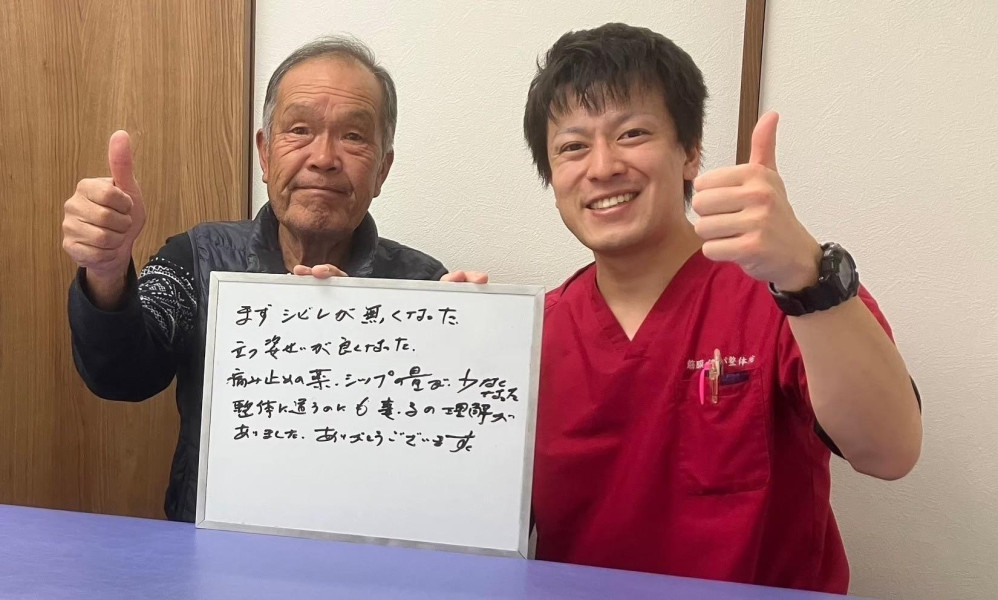 まず シビレが 無くなった.
立つ 姿せいが 良くなった.
痛み止めの薬.シップの量が.少なく
なった
整体に通うのにも 妻の理解が
ありました. ありがとうございます。
整体